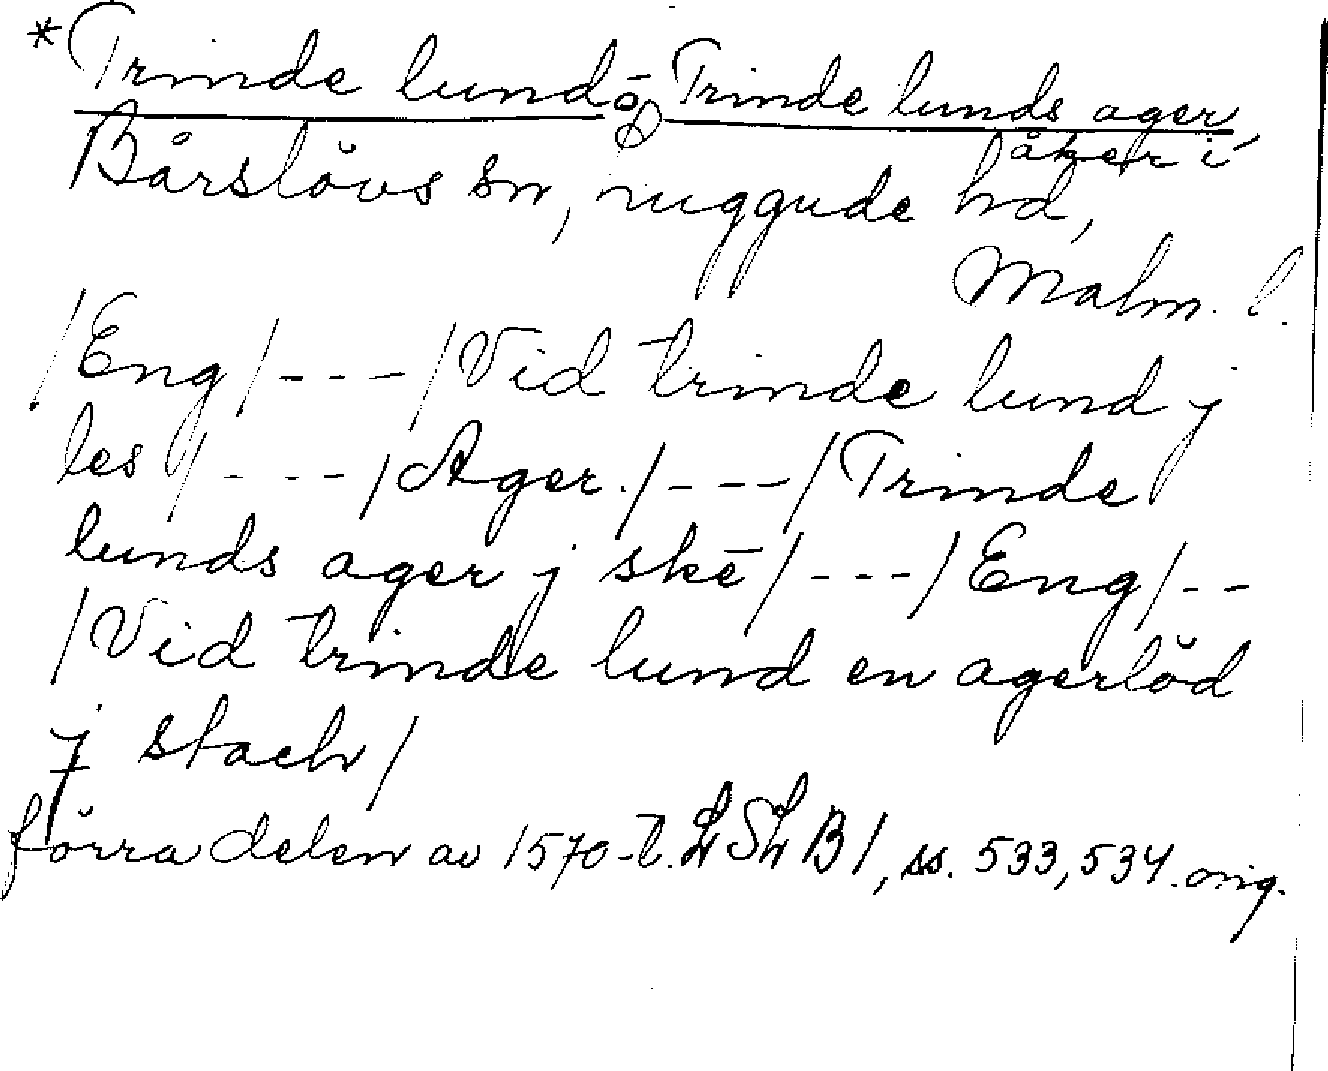 *Trinde lund o Trinde lunds ager,
åker i
Bårslövs sn, Luggude hd,
Malm. l.
/Eng/---/Vid trinde lund j
les /---/Ager./---/Trinde
lunds ager j skē/---/Eng/--
/Vid trinde lund en agerlöd
j stach/
förra delen av 1570-t. LSLB1, ss. 533, 534. orig.